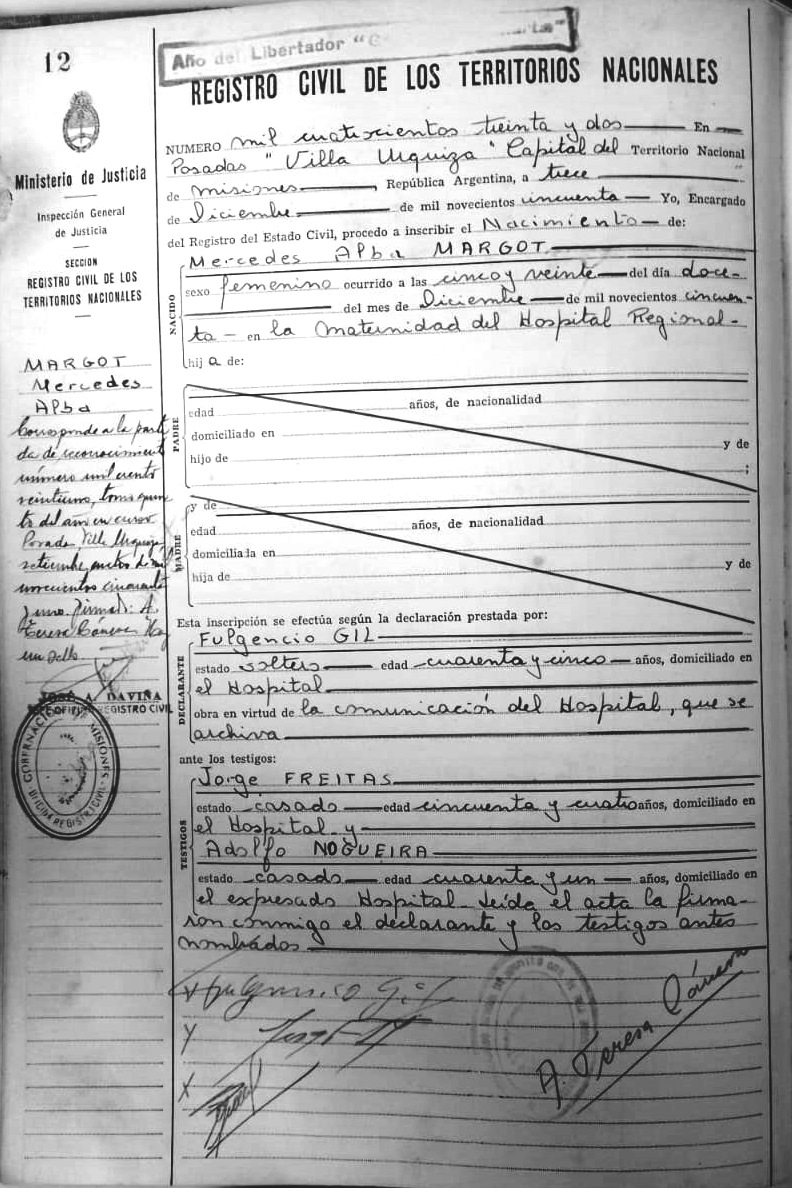 12
Año del Libertador "G
REGISTRO CIVIL DE LOS TERRITORIOS NACIONALES
Ministerio de Justicia
Inspección General
de Justicia
SECCION
REGISTRO CIVIL DE LOS
TERRITORIOS NACIONALES
MARGOT
Mercedes
Alba
Corresponde a la parti
da de reconocimiento
número mil ciento
veintiuno, tomo quin
to del año en curso
Posadas Villa Urquiza
setiembre de mil
novecientos cincuenta
y uno. Firmado: A.
Teresa Cánova Hay
un sello
JOSÉ A. DAVIÑA
JEFE OFICINA REGISTRO CIVIL
GOBERNACION DE MISIONES
OFICINA REGISTRO CIVIL
NUMERO mil cuatrocientos treinta y dos En
Posadas "Villa Urquiza" Capital del Territorio Nacional
de Misiones, República Argentina, a trece
de Diciembre de mil novecientos cincuenta Yo, Encargado
del Registro del Estado Civil, procedo a inscribir el Nacimiento de:
NACIDO
Mercedes Alba MARGOT
sexo femenino ocurrido a las cinco y veinte del día doce
del mes de Diciembre de mil novecientos cincuen-
ta - en la Maternidad del Hospital Regional-
hija de:
PADRE
edad años, de nacionalidad
domiciliado en
hijo de y de
;
MADRE
y de
edad años, de nacionalidad
domiciliada en
hija de y de
Esta inscripción se efectúa según la declaración prestada por:
DECLARANTE
Fulgencio GIL
estado soltero edad cuarenta y cinco años, domiciliado en
el Hospital
obra en virtud de la comunicación del Hospital, que se
archiva
ante los testigos:
TESTIGOS
Jorge FREITAS
estado casado edad cincuenta y cuatro años, domiciliado en
el Hospital y
Adolfo NOGUEIRA
estado casado edad cuarenta y un años, domiciliado en
el expresado Hospital. Leída el acta la firma-
ron conmigo el declarante y los testigos antes
nombrados
Fulgencio Gil
A. Teresa Cánova